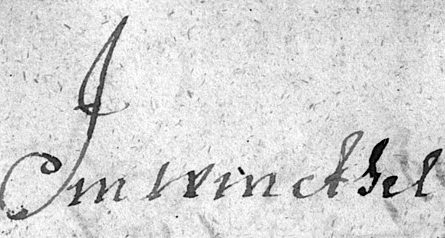 Jm winckhel